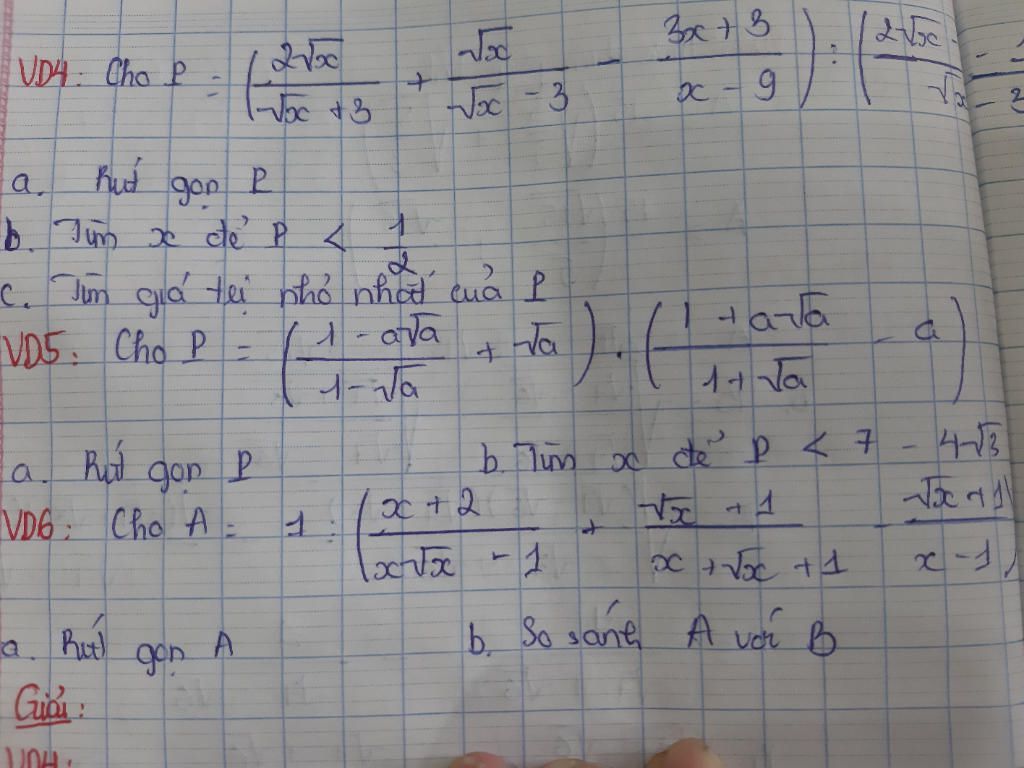 VD4: Cho P = (2√x / √x + 3 + √x / √x - 3 - 3x + 3 / x - 9) : (2√x - / √x - 3 - 1
a. Rút gọn P
b. Tìm x để P < 1/2
c. Tìm giá trị nhỏ nhất của P
VD5: Cho P = (1 - a√a / 1 - √a + √a) . (1 + a√a / 1 + √a - a)
a. Rút gọn P b. Tìm x để P < 7 - 4√3
VD6: Cho A = 1 : (x + 2 / x√x - 1 + √x + 1 / x + √x + 1 - √x + 1 / x - 1)
a. Rút gọn A b. So sánh A với B
Giải:
VD4: